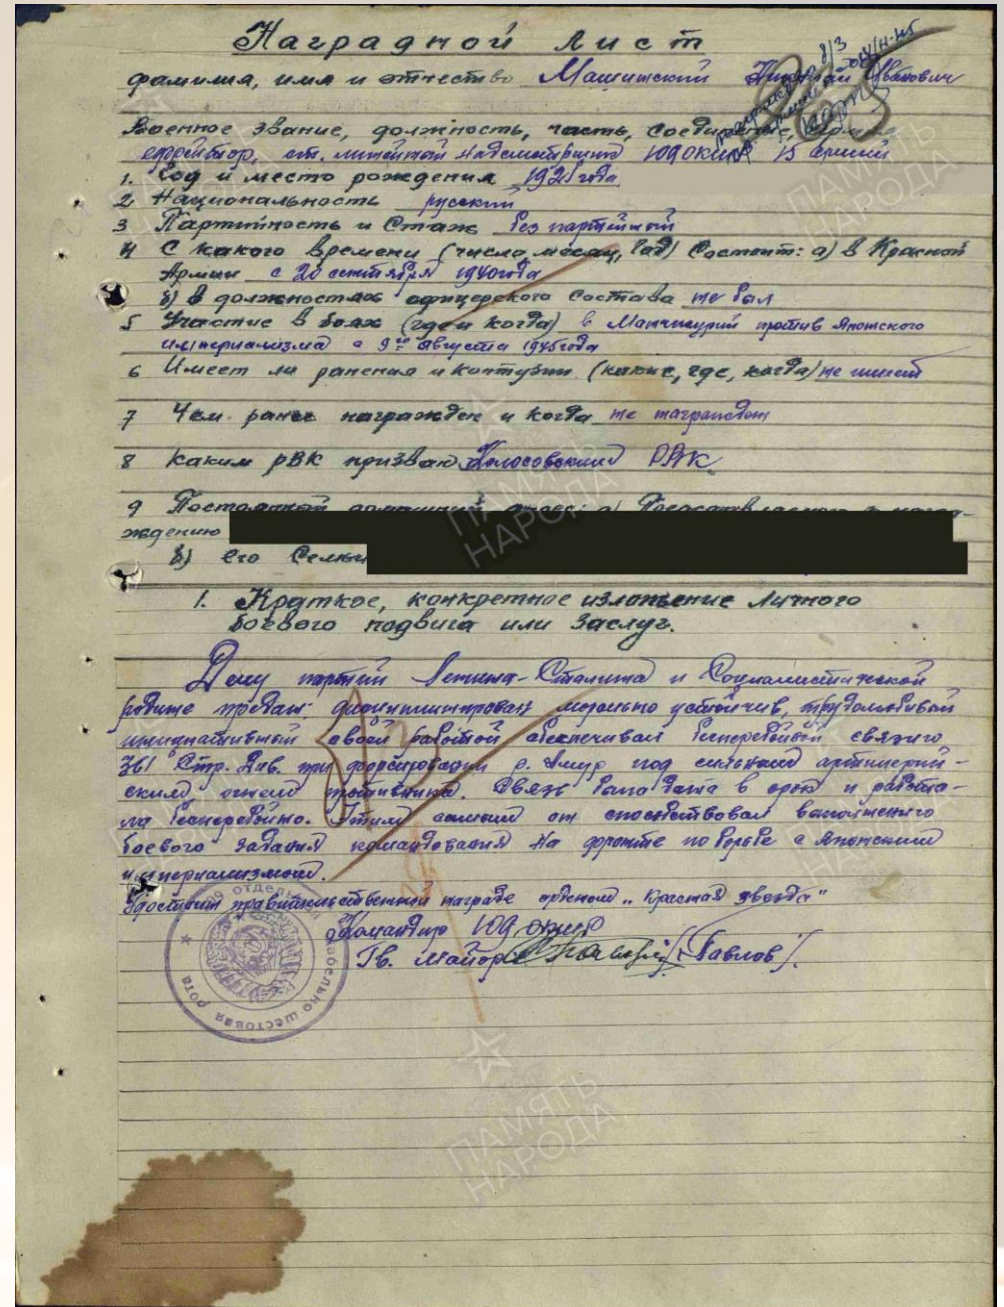 Наградной лист
8/3
фамилия, имя и отчество Иванович
Военное звание, должность, часть, соединение,
ефрейтор, ст. линейный надсмотрщик 109 ОКШР 15 армии
1. Год и место рождения 1921 года
2 Национальность русский
3 Партийность и Стаж без партийный
4 С какого времени (число, месяц, год) Состоит: а) в Красной
Армии с 20 сентября 1940 года
б) в должностях офицерского состава не был
5 Участие в боях (где и когда) в Манчжурии против Японского
империализма с 9го августа 1945 года
6 Имеет ли ранения и контузии (какие, где, когда) не имеет
7 Чем ранее награжден и когда не награжден
8 Каким РВК призван Колосовским РВК
9 Постоянный
ждению
б) его Семьи
1. Краткое, конкретное изложение личного
боевого подвига или заслуг.
Делу партии Ленина-Сталина и Социалистической
родине предан; дисциплинирован морально устойчив, трудолюбивый
инициативный своей работой обеспечивал бесперебойной связью
361 Стр. Див. при форсировании р. Амур под сильным артиллерий-
ским огнем противника. Связь была дана в срок и работа-
ла бесперебойно. Этим самым он способствовал выполнению
боевого задания командования на фронте по борьбе с Японским
империализмом.
Удостоин правительственной награде орденом „Красная звезда"
Командир 109 ОКШР
Гв. Майор (Павлов).
109 отдельная кабельно шестовая рота
ПАМЯТЬ НАРОДА
ПАМЯТЬ НАРОДА
ПАМЯТЬ НАРОДА
ПАМЯТЬ НАРОДА